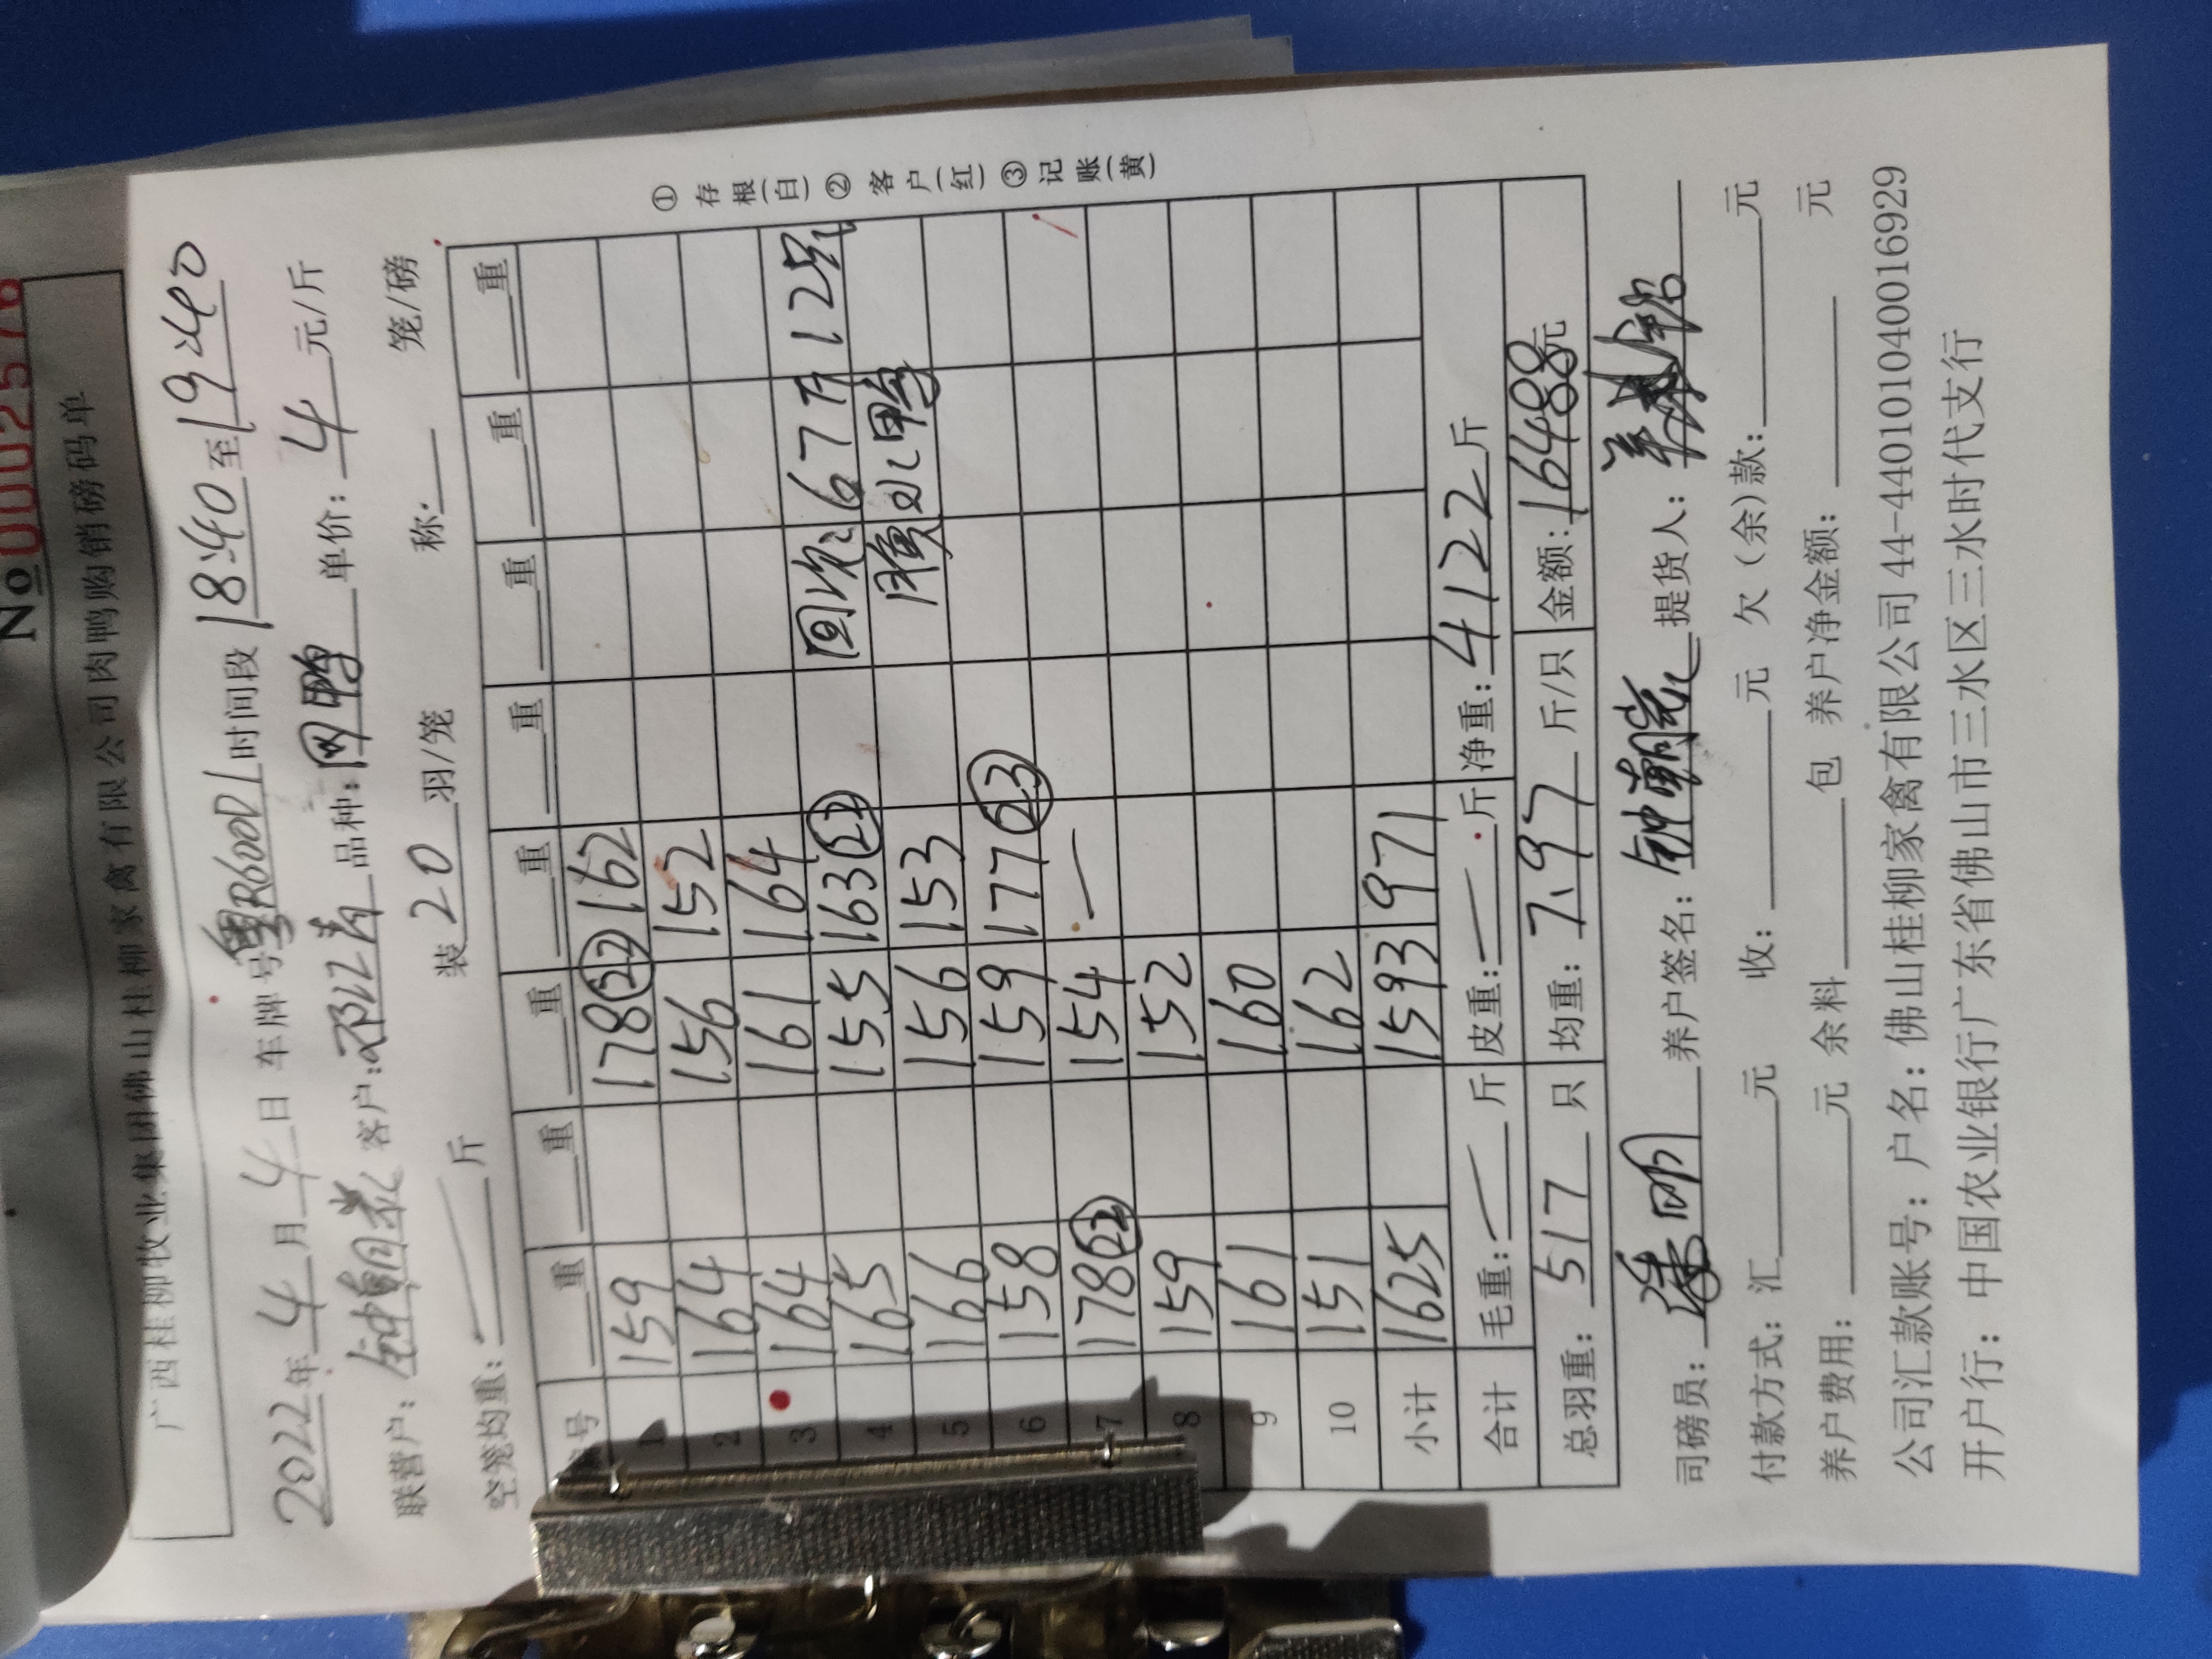 No 0002576
广西桂柳牧业集团佛山桂柳家禽有限公司肉鸭购销磅码单
2022年4月4日 车牌号粤R600D1时间段18:40至19:40
联营户: 客户: 品种: 单价: 4 元/斤
空笼均重: 斤 装 20 羽/笼 称: 笼/磅
号 重 重 重 重 重 重 重 重
1 159 178(22) 162
2 164 156 152
3 164 161 164
4 165 155 163(22)
回 67 125
5 166 156 153
鸭
6 158 159 177(23)
7 178(22) 154 —
8 159 152
9 161 160
10 151 162
小计 1625 1593 971
合计 毛重: 斤 皮重: 斤 净重: 4122斤
总羽重: 517 只 均重: 7.97 斤/只 金额: 16488元
司磅员: 养户签名: 提货人:
付款方式: 汇 元 收: 元 欠(余)款: 元
养户费用: 元 余料 包 养户净金额: 元
公司汇款账号: 户名: 佛山桂柳家禽有限公司 44-440101040016929
开户行: 中国农业银行广东省佛山市三水区三水时代支行
①存根(白)②客户(红)③记账(黄)